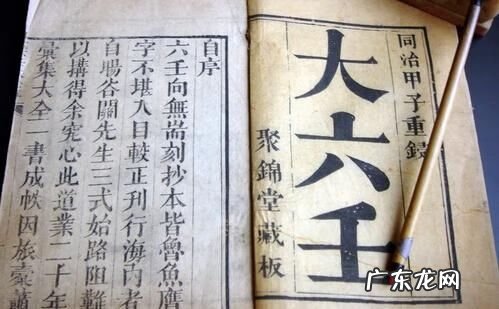 同治甲子重鐫
大六壬
聚錦堂藏板
自序
六壬向無耑刻抄本皆魯魚贗
字不堪入目較正刊行海內者
自場谷關先生三式始路阻難
以搆得余究心此道業二十年
彙集大全一書成帙因旅橐蕭
广东龙网